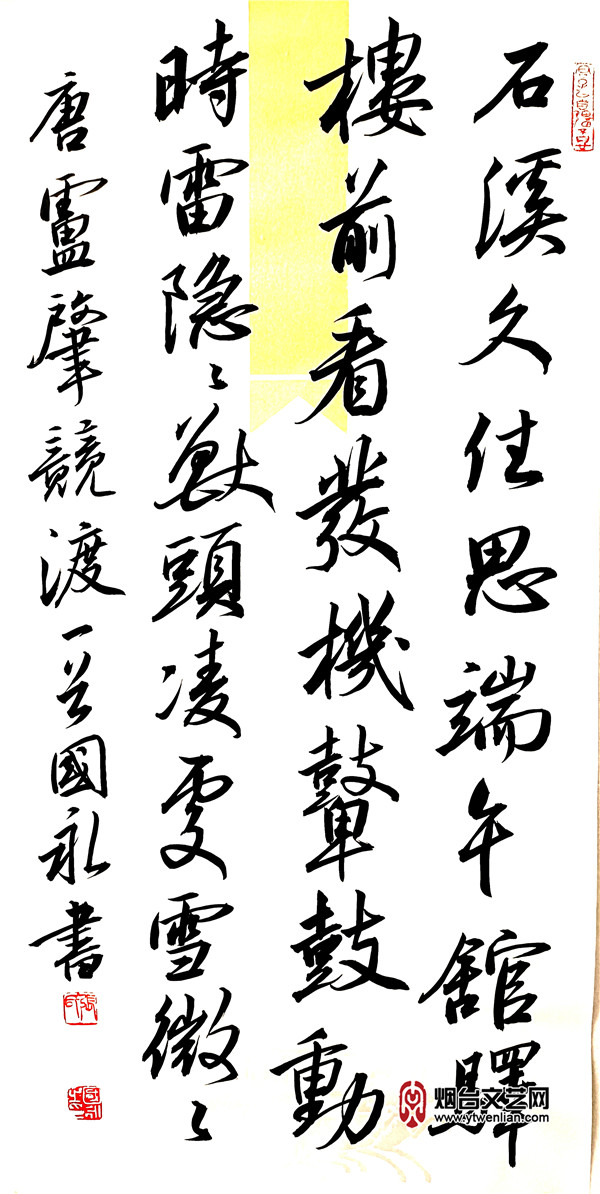 石溪久住思端午舘驛
樓前看發機鼙鼓動
時雷隐〻獸頭凌處雪微〻
唐盧肇競渡一首國永書
烟台文艺网
www.ytwenlian.com